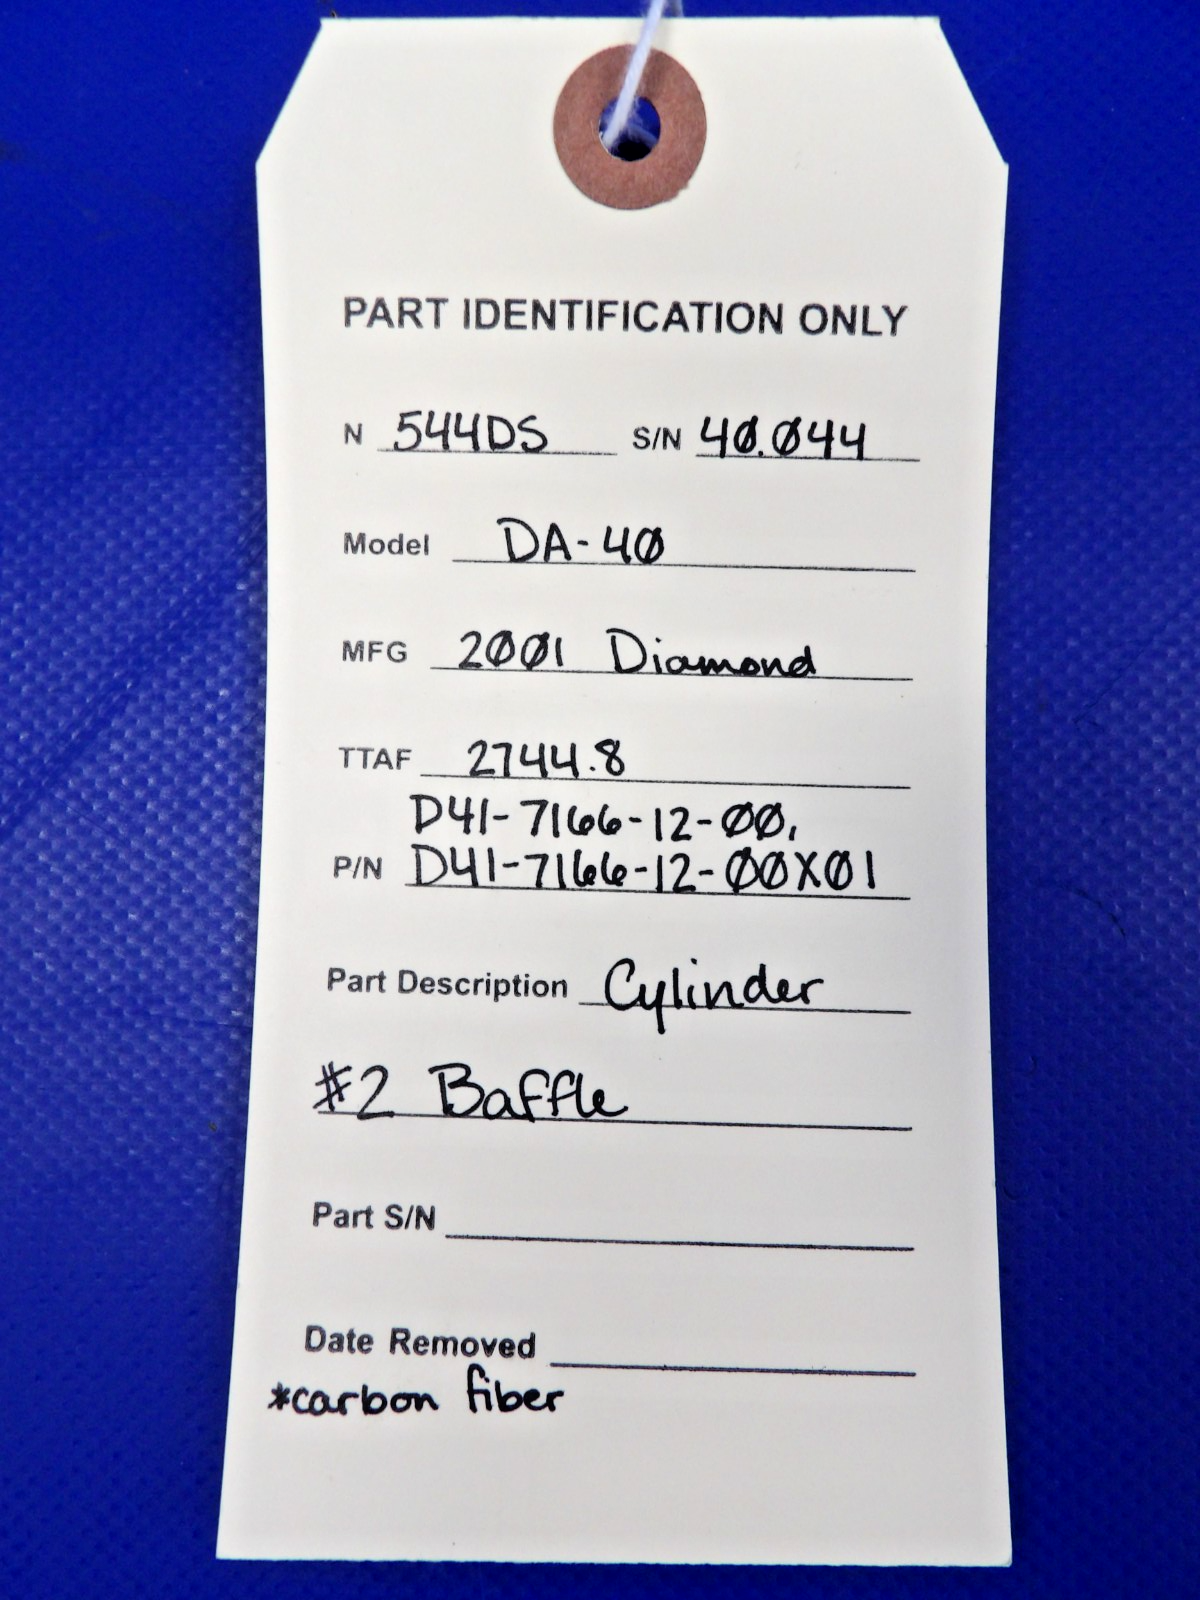 PART IDENTIFICATION ONLY
N 544DS S/N 40.044
Model DA-40
MFG 2001 Diamond
TTAF 2744.8
D41-7166-12-00,
P/N D41-7166-12-00X01
Part Description Cylinder
#2 Baffle
Part S/N
Date Removed
*carbon fiber